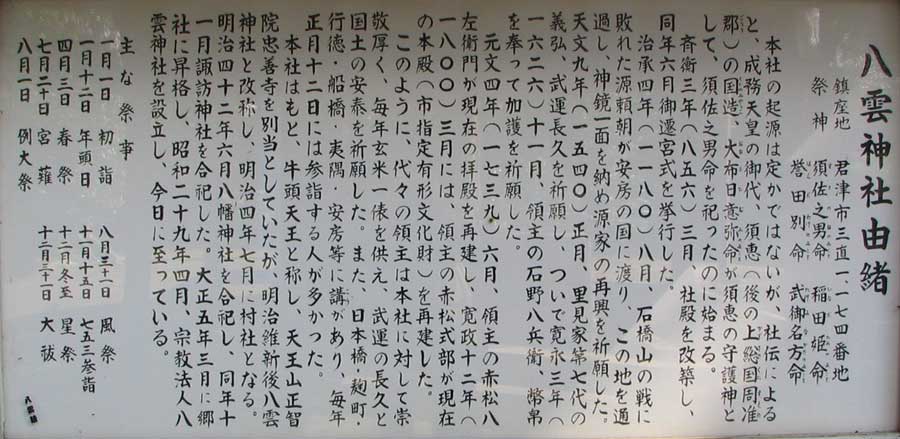 八雲神社由緒
鎮座地　君津市三直一、一七四番地
祭神　須佐之男命　稲田姫命
誉田別命　武御名方命
本社の起源は定かではないが、社伝による
と、成務天皇の御代、須惠（後の上総国周准
郡）の国造、大布日意弥命が須恵の守護神と
して、須佐之男命を祀ったのに始まる。
斉衡三年（八五六）三月、社殿を改築し、
同年六月御遷宮式を挙行した。
治承四年（一一八〇）八月、石橋山の戦に
敗れた源頼朝が安房の国に渡り、この地を通
過し、神鏡一面を納め源家の再興を祈願した。
天文九年（一五四〇）正月、里見家第七代の
義弘、武運長久を祈願し、ついで寛永三年（
一六二六）十一月、領主の石野八兵衛、幣帛
を奉って加護を祈願した。
元文四年（一七三九）六月、領主の赤松八
左衛門が現在の拝殿を再建し、寛政十二年（
一八〇〇）三月には、領主の赤松式部が現在
の本殿（市指定有形文化財）を再建した。
このように、代々の領主は本社に対して崇
敬厚く、毎年玄米一俵を供え、武運の長久と
国土の安泰を祈願した。また、日本橋・麹町・
行徳・船橋・夷隅・安房等に講があり、毎年
正月十二日には参詣する人が多かった。
本社はもと、牛頭天王と称し、天王山正智
院忠善寺を別当としていたが、明治維新後八雲
神社と改称し、明治四年七月に村社となる。
明治四十二年六月八幡神社を合祀し、同年十
一月諏訪神社を合祀した。大正五年三月に郷
社に昇格し、昭和二十九年四月、宗教法人八
雲神社を設立し、今日に至っている。
主な祭事
一月一日　初詣　八月三十一日　風祭
一月十二日　年頭日　十一月十五日　七五三参詣
四月三日　春祭　十二月冬至　星祭
七月二十日　宮薙　十二月三十一日　大祓
八月一日　例大祭